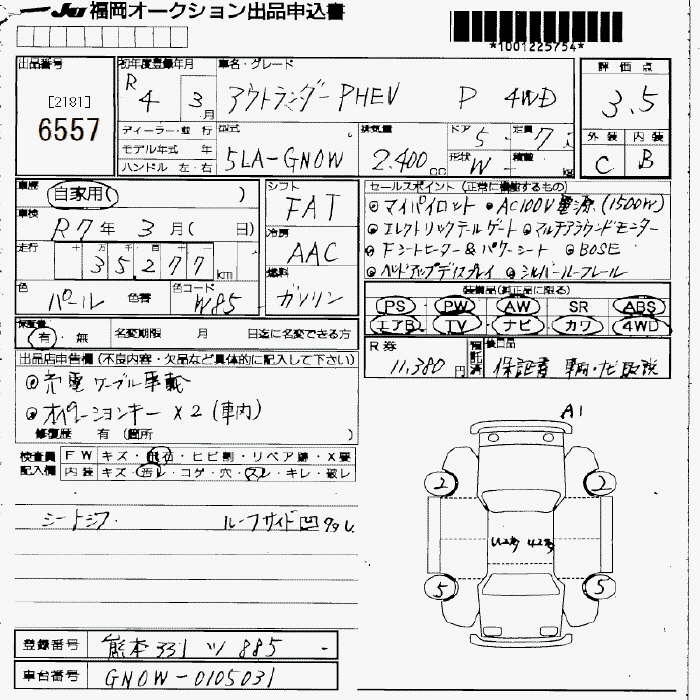 JU 福岡オークション出品申込書
*1001225754*
出品番号
[2181]
6557
初年度登録年月
R 4 3 月
車名・グレード
アウトランダーPHEV P 4WD
評価点
3.5
外装 内装
C B
ディーラー・並行
モデル年式 年
ハンドル 左・右
型式
5LA-GN0W
排気量
2.400 cc
ドア 5 定員 7 人
形状 W 積載 kg
車歴
自家用( )
車検
R7年 3月( 日)
走行
十万 万 千 百 十
35,277 km
色
パール 色替
色コード
W85
シフト
FAT
冷房
AAC
燃料
ガソリン
セールスポイント (正常に機能するもの)
◎マイパイロット ◎AC100V電源(1500W)
◎エレクトリックテールゲート ◎マルチアラウンドモニター
◎Fシートヒーター&パワーシート ◎BOSE
◎ヘッドアップディスプレイ ◎シルバールーフレール
装備品(純正品に限る)
PS・PW・AW・SR・ABS
エアB・TV・ナビ・カワ・4WD
保証書
有・無
名変期限 月 日迄に名変できる方
R券
11,380円
預託済
後日品
保証書 車内・ナビ取説
出品店申告欄 (不良内容・欠品など具体的に記入して下さい)
◎充電ケーブル車載
◎オペレーションキー×2(車内)
修復歴 有 (箇所 )
検査員記入欄
FW キズ・飛石・ヒビ割・リペア跡・X要
内装 キズ・汚レ・コゲ・穴・スレ・キレ・破レ
シートシワ ルーフサイド凹
A1
2 2
5 5
登録番号 熊本 331 ツ 885 -
車台番号 GN0W-0105031